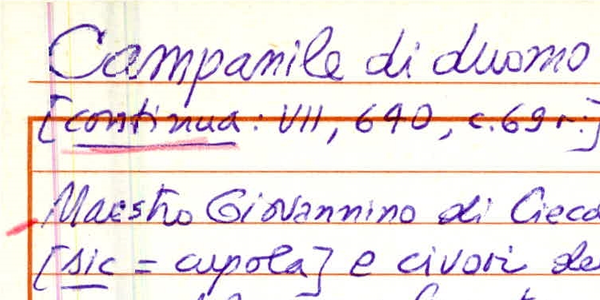 Campanile di duomo
[continua: VII, 640, c.69r.]
Maestro Giovannino di Ciecco
[sic = cupola] e civori de